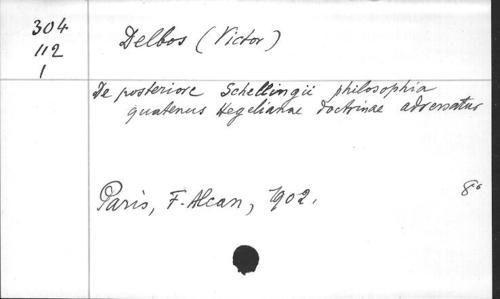 304
112
1
Delbos (Victor)
De posteriore Schellingii philosophia
quatenus Hegelianae doctrinae adversatur
Paris, F. Alcan, 1902.
8°